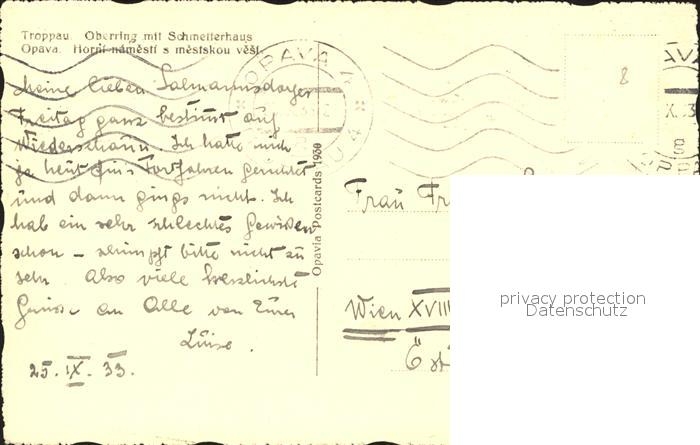 Troppau. Oberring mit Schmetterhaus
Opava. Horní náměstí s městskou věží
Meine lieben Salmannsdorfer
Freitag ganz bestimmt auf
Wiederschaun. Ich hatte mich
ja heut fürs Fortfahren gerichtet
und dann gings nicht. Ich
hab ein sehr schlechtes Gewissen
schon – schimpft bitte nicht zu
sehr. Also viele herzlichste
Grüsse an Alle von Eurer
Luise.
25. IX. 33.
OPAVA 1
Opavia Postcards 1930
8
Frau Fr
Wien XVIII
Öst
privacy protection
Datenschutz